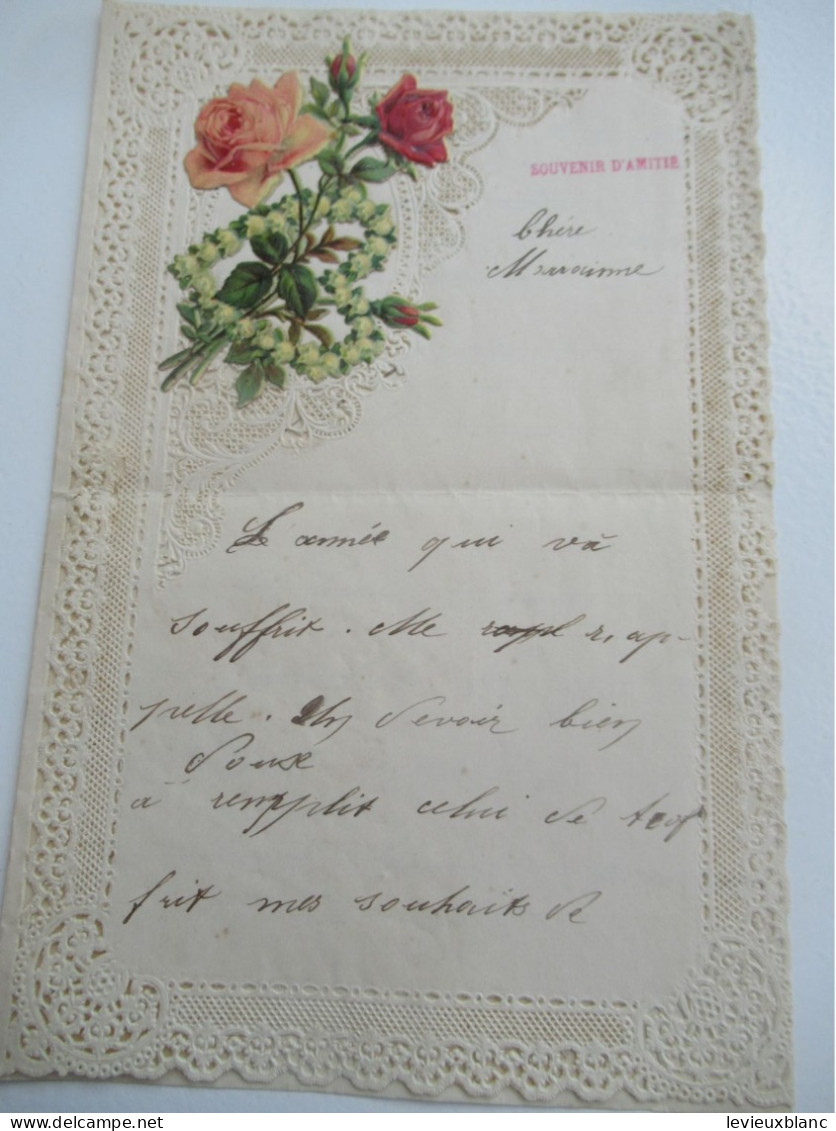 SOUVENIR D'AMITIÉ
Chére
Marrainne
L'année qui vâ
souffrir. Me rap-
pelle. Un devoir bien
doux
a remplit celui de t'of
frir mes souhaits de
levieuxblanc